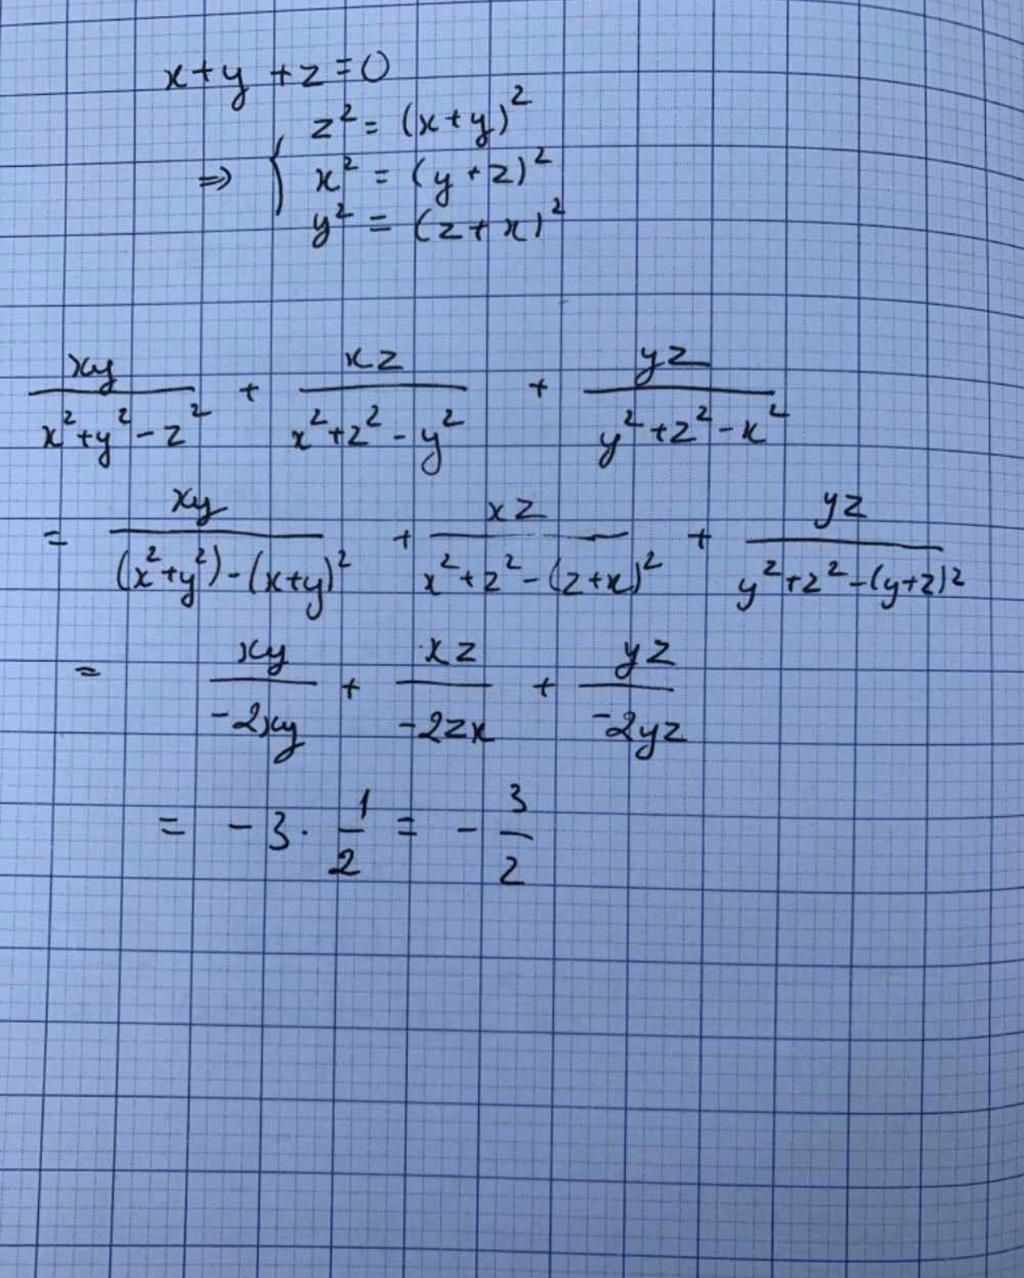 x+y+z=0
⇒ { z² = (x+y)²
x² = (y+z)²
y² = (z+x)²
xy/(x²+y²-z²) + xz/(x²+z²-y²) + yz/(y²+z²-x²)
= xy/((x²+y²)-(x+y)²) + xz/(x²+z²-(z+x)²) + yz/(y²+z²-(y+z)²)
= xy/(-2xy) + xz/(-2zx) + yz/(-2yz)
= -3 · 1/2 = - 3/2